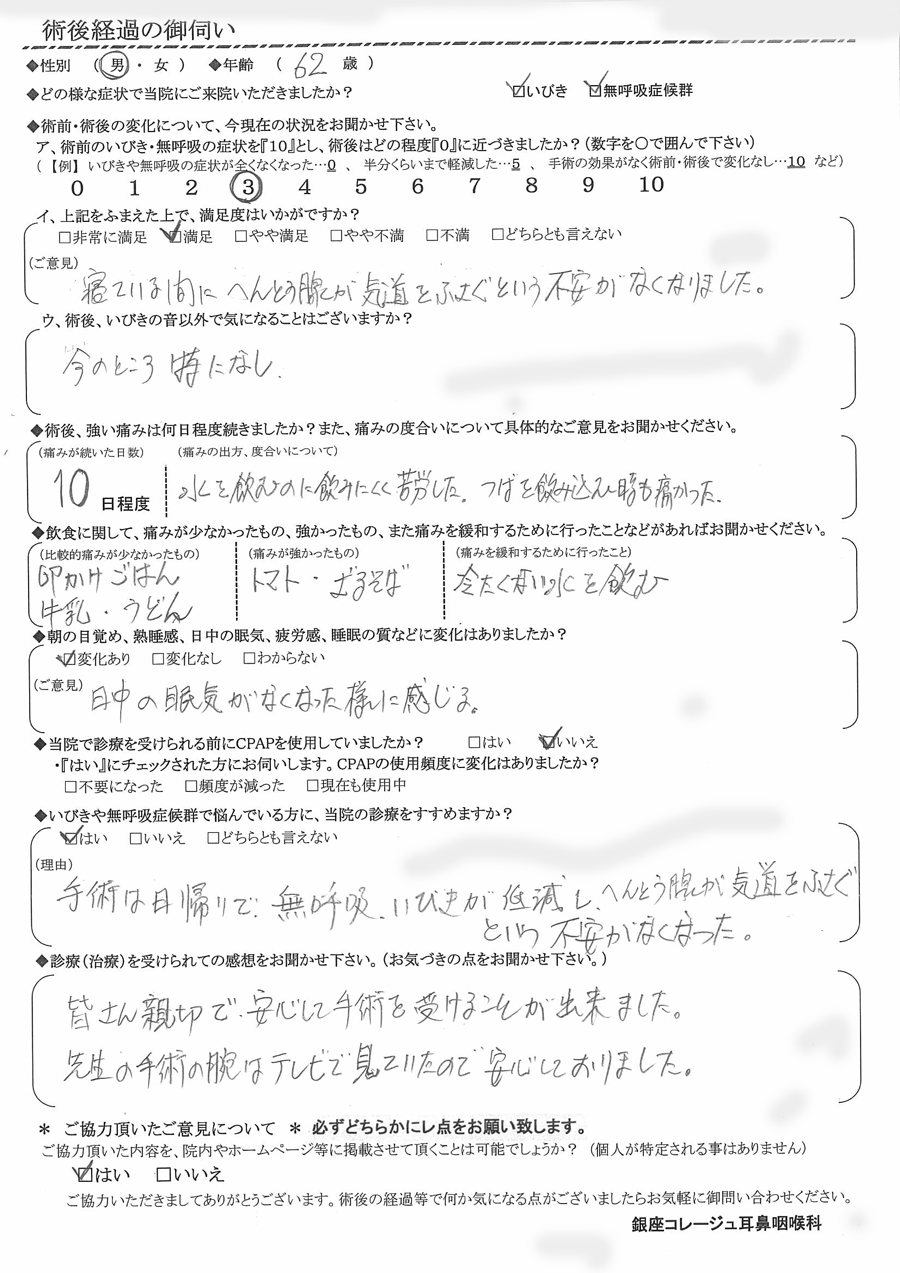 術後経過の御伺い
◆性別 （ 男 ・ 女 ） ◆年齢 （ 62 歳 ）
◆どの様な症状で当院にご来院いただきましたか？ ☑いびき ☑無呼吸症候群
◆術前・術後の変化について、今現在の状況をお聞かせ下さい。
ア、術前のいびき・無呼吸の症状を『10』とし、術後はどの程度『0』に近づきましたか？（数字を〇で囲んで下さい）
（【例】いびきや無呼吸の症状が全くなくなった…0 、 半分くらいまで軽減した…5 、 手術の効果がなく術前・術後で変化なし…10 など）
0 1 2 3 4 5 6 7 8 9 10
イ、上記をふまえた上で、満足度はいかがですか？
□非常に満足 ☑満足 □やや満足 □やや不満 □不満 □どちらとも言えない
（ご意見）
寝ている間にへんとう腺が気道をふさぐという不安がなくなりました。
ウ、術後、いびきの音以外で気になることはございますか？
今のところ特になし.
◆術後、強い痛みは何日程度続きましたか？また、痛みの度合いについて具体的なご意見をお聞かせください。
（痛みが続いた日数） （痛みの出方、度合いについて）
10 日程度 水を飲むのに飲みにくく苦労した。つばを飲み込む時も痛かった.
◆飲食に関して、痛みが少なかったもの、強かったもの、また痛みを緩和するために行ったことなどがあればお聞かせください。
（比較的痛みが少なかったもの） （痛みが強かったもの） （痛みを緩和するために行ったこと）
卵かけごはん トマト・ざるそば 冷たくない水を飲む
牛乳・うどん
◆朝の目覚め、熟睡感、日中の眠気、疲労感、睡眠の質などに変化はありましたか？
☑変化あり □変化なし □わからない
（ご意見）
日中の眠気がなくなった様に感じる。
◆当院で診療を受けられる前にCPAPを使用していましたか？ □はい ☑いいえ
・『はい』にチェックされた方にお伺いします。CPAPの使用頻度に変化はありましたか？
□不要になった □頻度が減った □現在も使用中
◆いびきや無呼吸症候群で悩んでいる方に、当院の診療をすすめますか？
☑はい □いいえ □どちらとも言えない
（理由）
手術は日帰りで、無呼吸、いびきが低減し、へんとう腺が気道をふさぐ
という不安がなくなった。
◆診療（治療）を受けられての感想をお聞かせ下さい。（お気づきの点をお聞かせ下さい。）
皆さん親切で、安心して手術を受けることが出来ました。
先生の手術の腕はテレビで見ていたので安心しておりました。
＊ ご協力頂いたご意見について ＊ 必ずどちらかにレ点をお願い致します。
ご協力頂いた内容を、院内やホームページ等に掲載させて頂くことは可能でしょうか？（個人が特定される事はありません）
☑はい □いいえ
ご協力いただきましてありがとうございます。術後の経過等で何か気になる点がございましたらお気軽に御問い合わせください。
銀座コレージュ耳鼻咽喉科